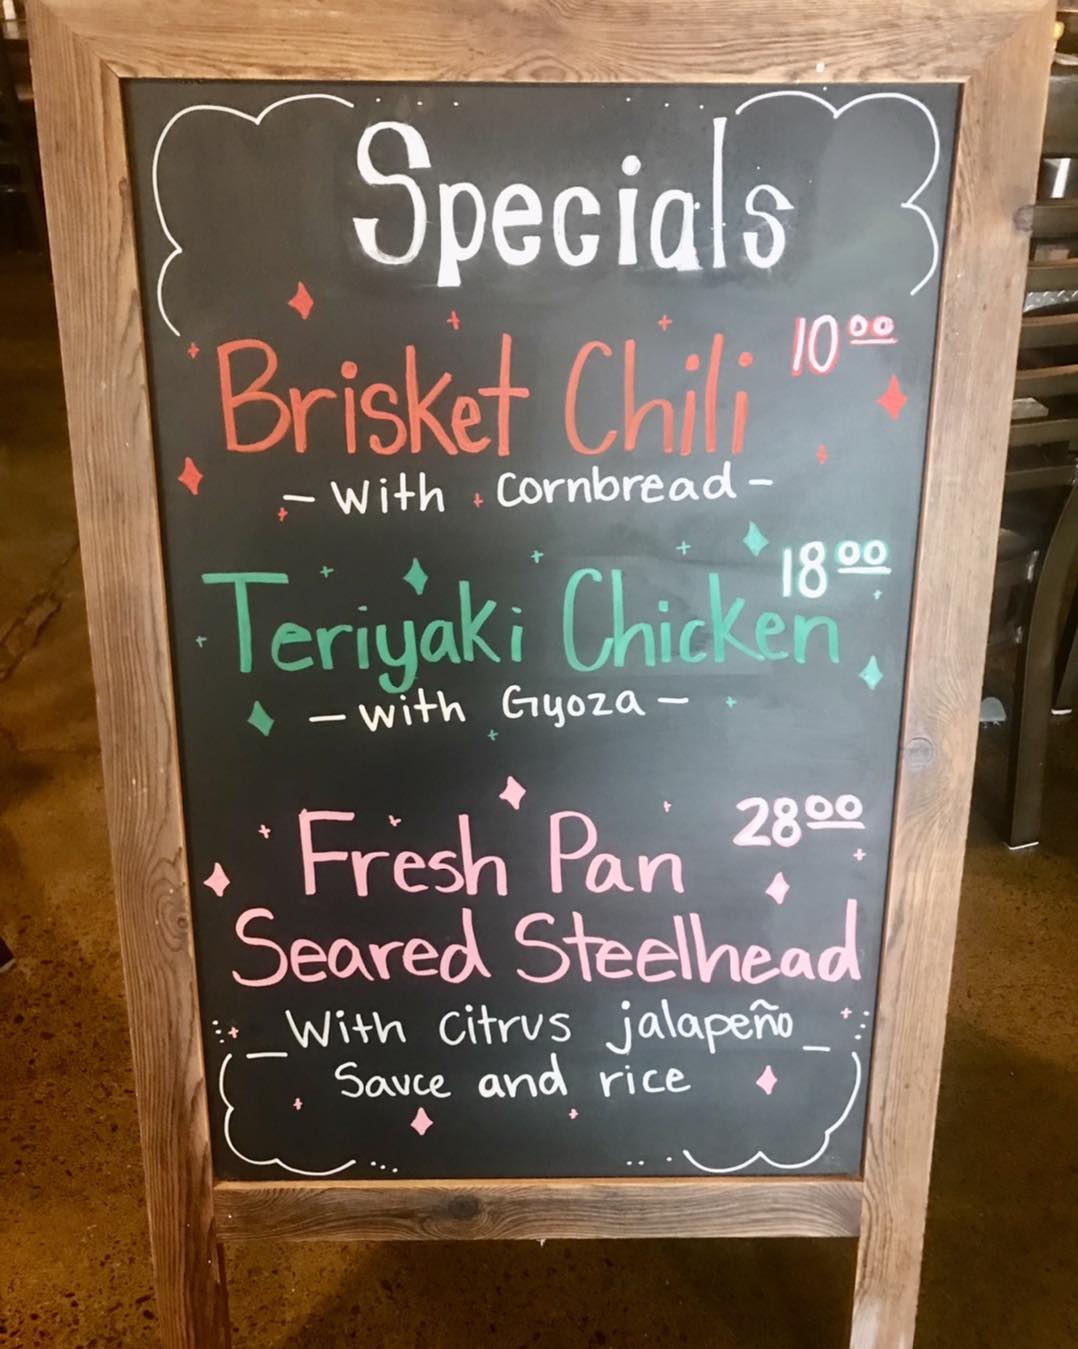 Specials
Brisket Chili 10.00
- With Cornbread -
Teriyaki Chicken 18.00
- with Gyoza -
Fresh Pan 28.00
Seared Steelhead
- With Citrus jalapeño -
Sauce and rice